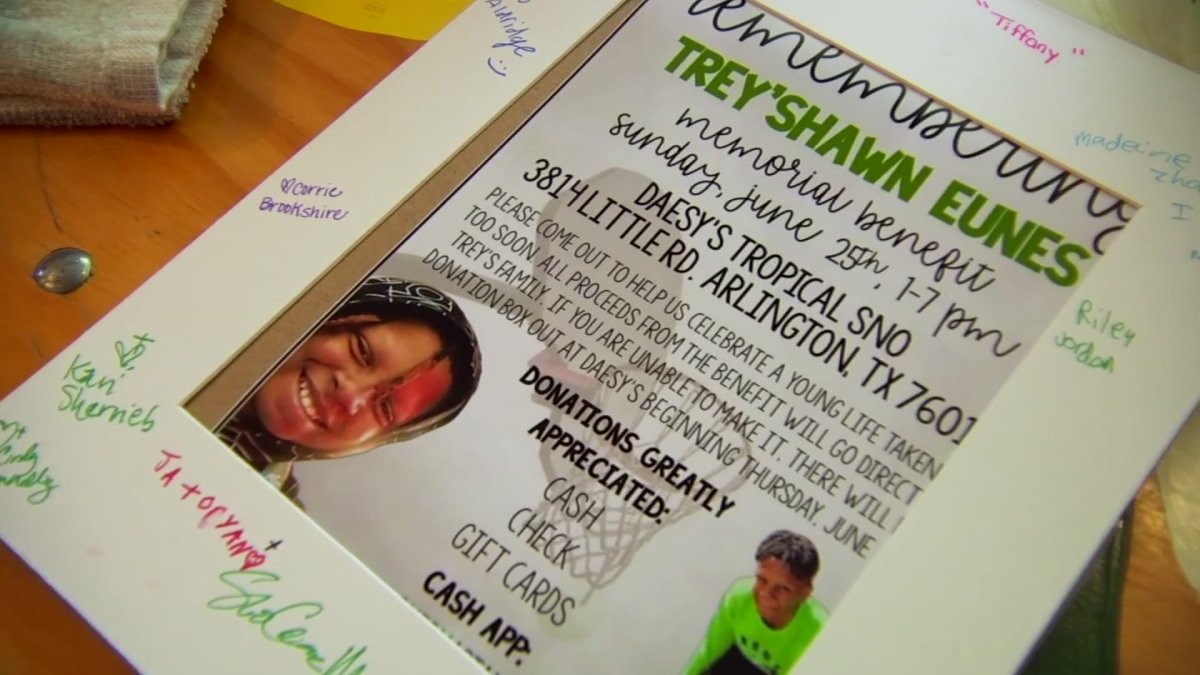 Remembering
TREY'SHAWN EUNES
memorial benefit
sunday, june 25th, 1-7 pm
DAESY'S TROPICAL SNO
3814 LITTLE RD. ARLINGTON, TX 7601
PLEASE COME OUT TO HELP US CELEBRATE A YOUNG LIFE TAKEN
TOO SOON. ALL PROCEEDS FROM THE BENEFIT WILL GO DIRECT
TREY'S FAMILY. IF YOU ARE UNABLE TO MAKE IT, THERE WILL
DONATION BOX OUT AT DAESY'S BEGINNING THURSDAY, JUNE
DONATIONS GREATLY
APPRECIATED:
CASH
CHECK
GIFT CARDS
CASH APP:
"Tiffany"
Riley
Jordan
Corrie
Brookshire
Kari